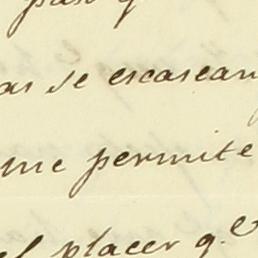 as se escasean
me permite
el placer q.e